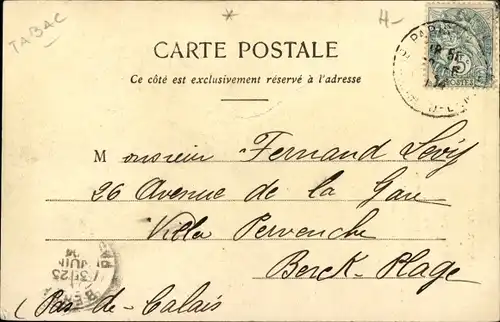 TABAC
*
H-
CARTE POSTALE
Ce côté est exclusivement réservé à l'adresse
PARIS
5c
POSTES
Monsieur Fernand Levy
26 Avenue de la Gare
Villa Pervenche
Berck-Plage
(Pas-de-Calais
JUIN